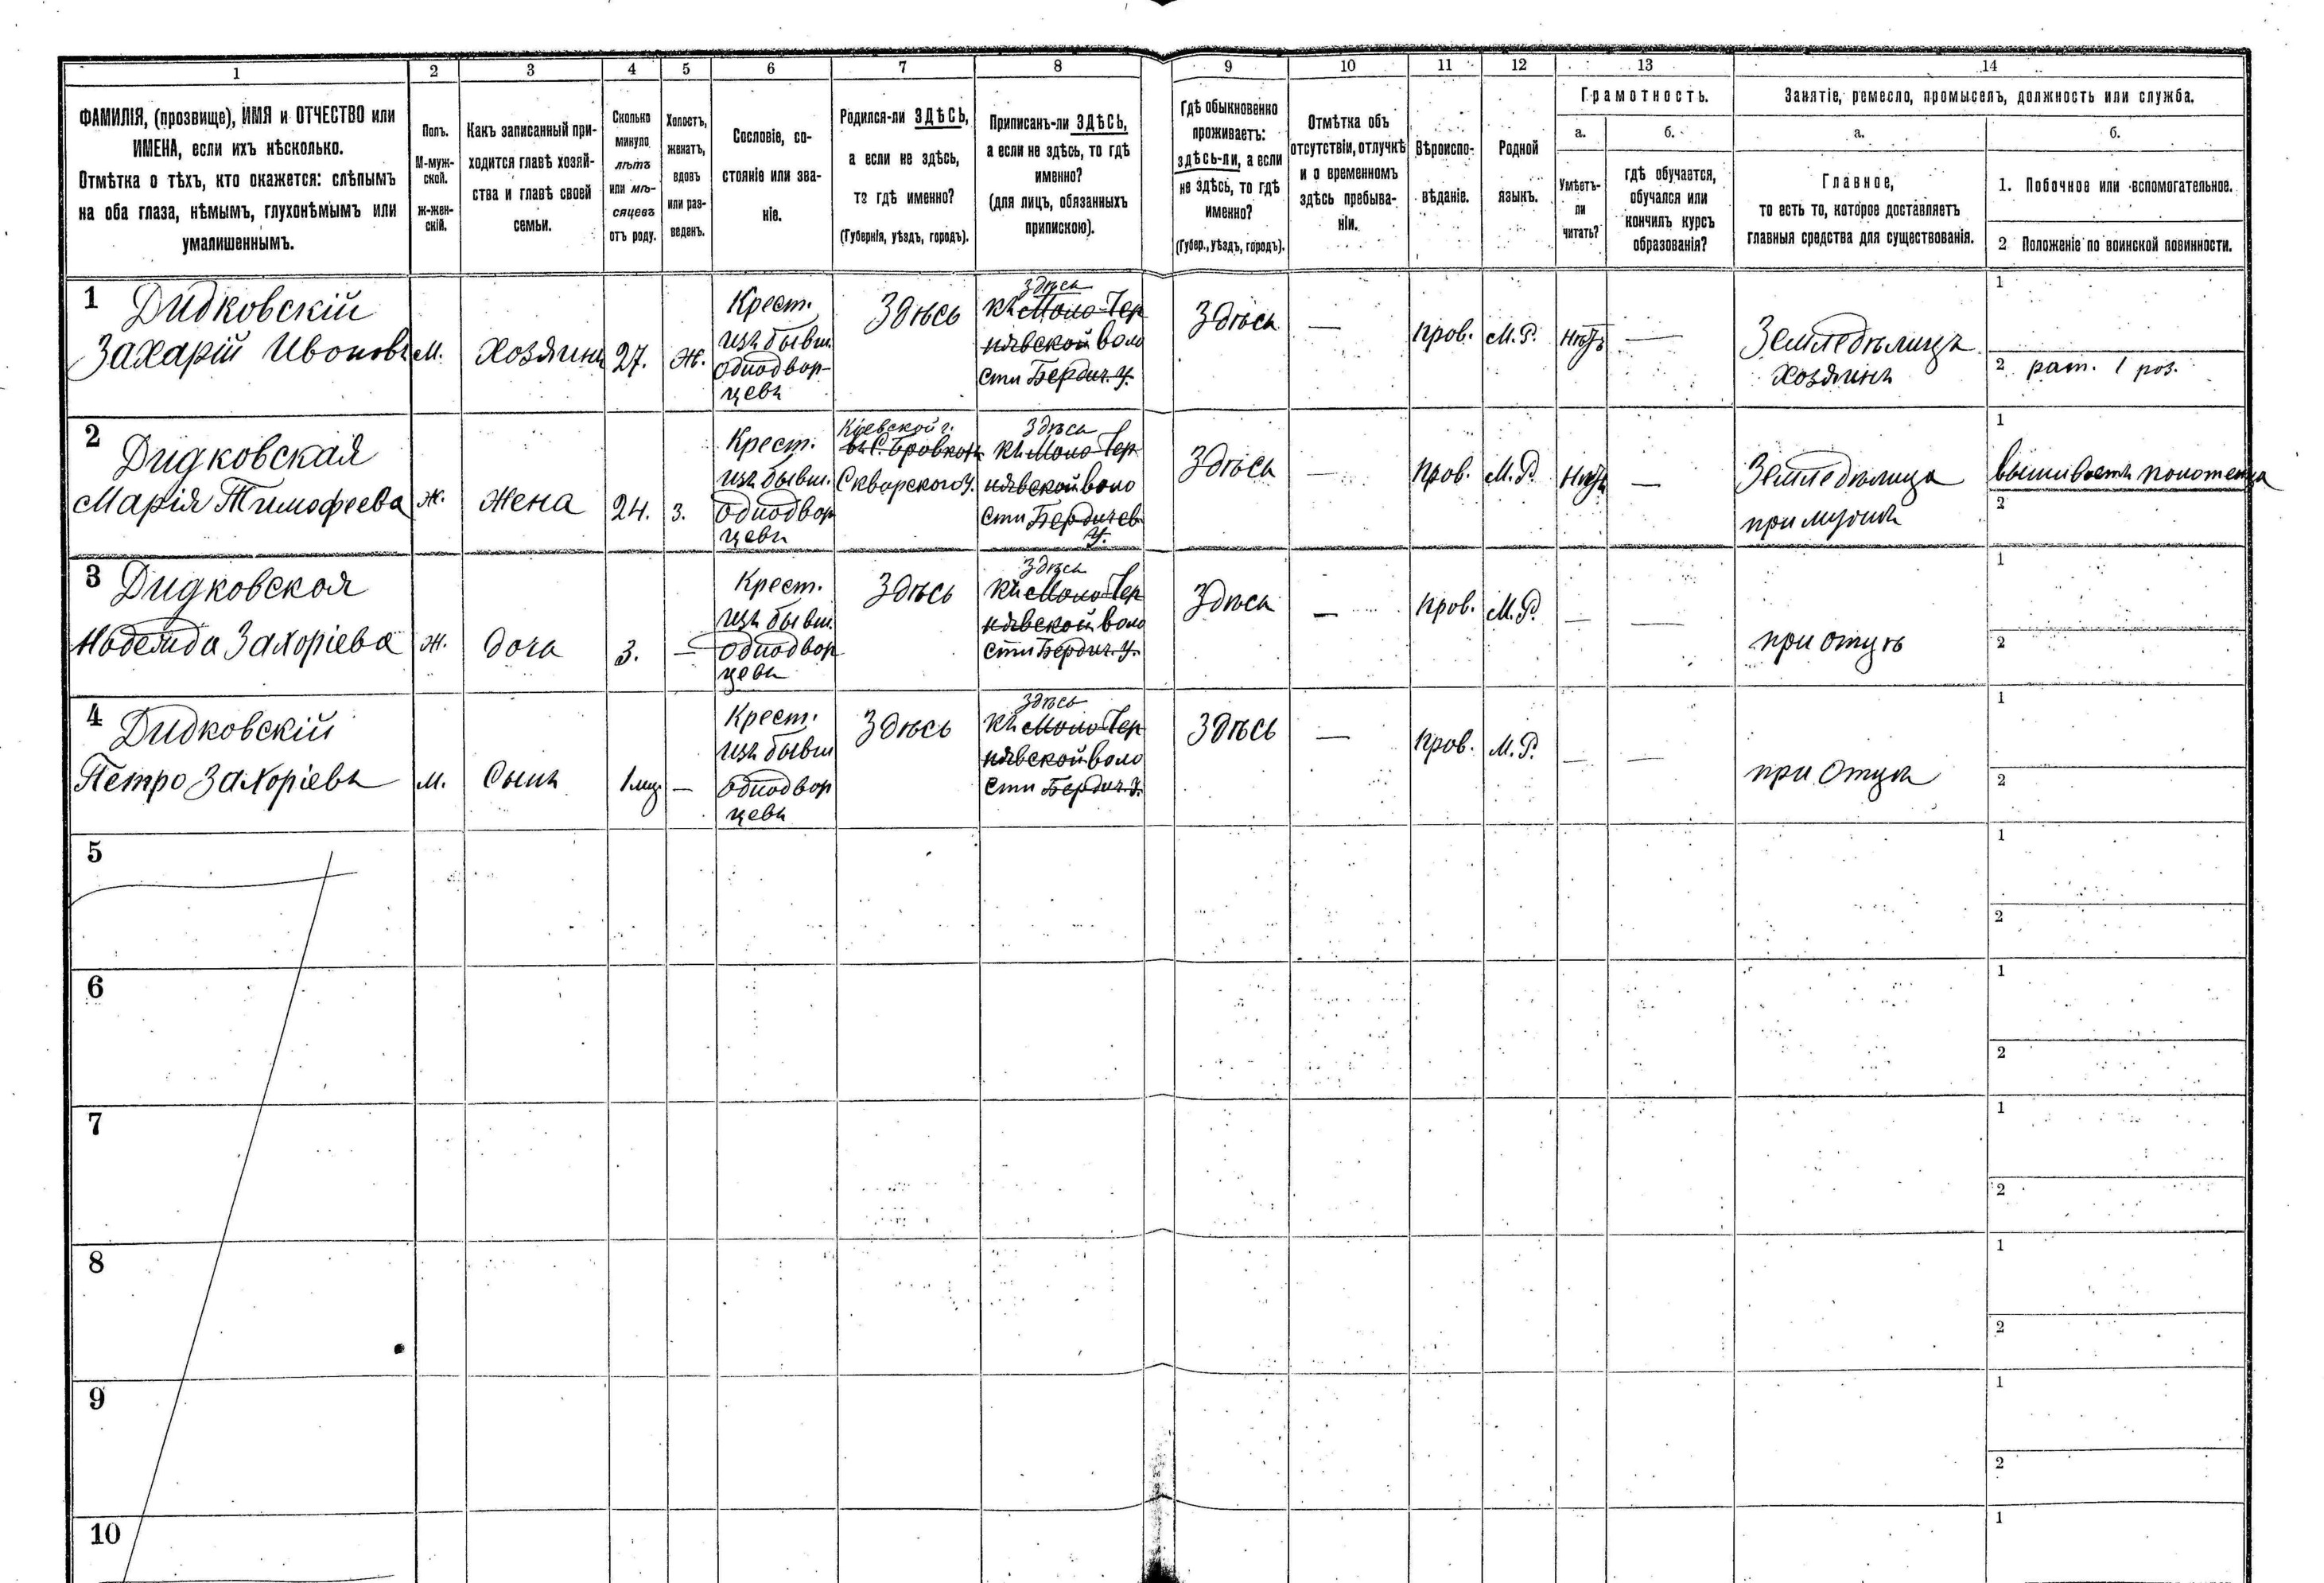 1 2 3 4 5 6 7 8 9 10 11 12 13 14
ФАМИЛІЯ, (прозвище), ИМЯ и ОТЧЕСТВО или
ИМЕНА, если ихъ нѣсколько.
Отмѣтка о тѣхъ, кто окажется: слѣпымъ
на оба глаза, нѣмымъ, глухонѣмымъ или
умалишеннымъ.
Полъ.
М-муж-
ской.
Ж-жен-
скій.
Какъ записанный при-
ходится главѣ хозяй-
ства и главѣ своей
семьи.
Сколько
минуло
лѣтъ
или мѣ-
сяцевъ
отъ роду.
Холостъ,
женатъ,
вдовъ
или раз-
веденъ.
Сословіе, со-
стояніе или зва-
ніе.
Родился-ли ЗДѢСЬ,
а если не здѣсь,
то гдѣ именно?
(Губернія, уѣздъ, городъ).
Приписанъ-ли ЗДѢСЬ,
а если не здѣсь, то гдѣ
именно?
(для лицъ, обязанныхъ
припискою).
Гдѣ обыкновенно
проживаетъ:
здѣсь-ли, а если
не здѣсь, то гдѣ
именно?
(Губер., уѣздъ, городъ).
Отмѣтка объ
отсутствіи, отлучкѣ
и о временномъ
здѣсь пребыва-
ніи.
Вѣроиспо-
вѣданіе.
Родной
языкъ.
Грамотность.
а.
Умѣетъ-
ли
читать?
б.
гдѣ обучается,
обучался или
кончилъ курсъ
образованія?
Занятіе, ремесло, промыселъ, должность или служба.
а.
Главное,
то есть то, которое доставляетъ
главныя средства для существованія.
б.
1. Побочное или вспомогательное.
2 Положеніе по воинской повинности.
1 Дидковскій
Захарій Ивановъ
М.
Хозяинъ
27.
Ж.
Крест.
изъ бывш.
однодвор-
цевъ
Здѣсь
Здѣсь
къ Мало-Чер
нявской воло
сти Бердич. у.
Здѣсь
—
прав.
М.Р.
нѣтъ
—
Земледѣлецъ
хозяинъ
1
2 рат. 1 раз.
2 Дидковская
Марія Тимофеева
Ж.
Жена
24.
З.
Крест.
изъ бывш.
однодвор
цевъ
Кіевской г.
въ с. Бровкахъ
Сквирского у.
Здѣсь
къ Мало-Чер
нявской воло
сти Бердичев
у.
Здѣсь
—
прав.
М.Р.
Нѣтъ
—
Земледѣлица
при мужѣ
1
вышиваетъ полотенца
2
3 Дидковская
Надежда Захаріева
Ж.
доча
3.
—
Крест.
изъ бывш.
однодвор
цевъ
Здѣсь
Здѣсь
къ Мало-Чер
нявской воло
сти Бердич. у.
Здѣсь
—
прав.
М.Р.
—
—
при отцѣ
1
2
4 Дидковскій
Петро Захаріевъ
М.
Сынъ
1 мц.
—
Крест.
изъ бывш
однодвор
цевъ
Здѣсь
Здѣсь
къ Мало-Чер
нявской воло
сти Бердич. у.
Здѣсь
—
прав.
М.Р.
—
—
при отцѣ
1
2
5
1
2
6
1
2
7
1
2
8
1
2
9
1
2
10
1